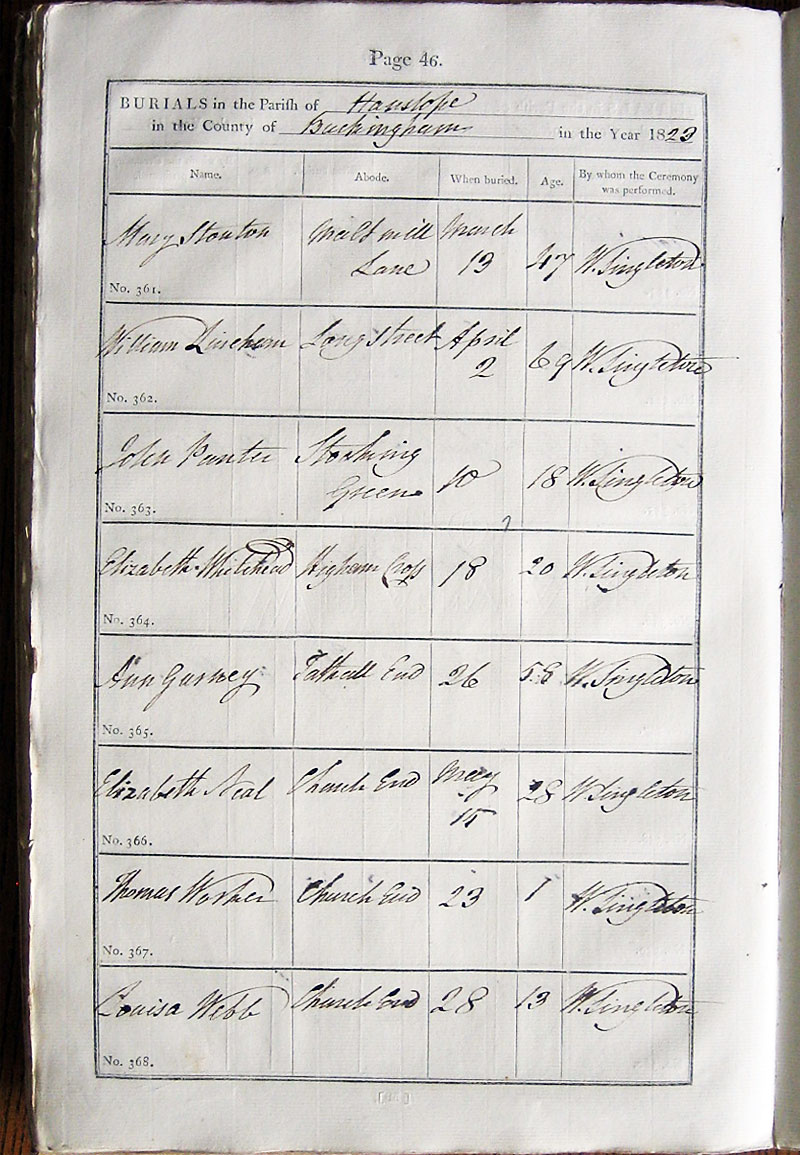 Page 46.
BURIALS in the Parish of Hanslope
in the County of Buckingham in the Year 1823
Name. Abode. When buried. Age. By whom the Ceremony was performed.
Mary Stonton Malt mill Lane March 13 47 W. Singleton
No. 361.
William Lineham Long Street April 2 69 W. Singleton
No. 362.
John Panter Stocking Green 10 18 W. Singleton
No. 363.
Elizabeth Whitehead Higham Cross 18 20 W. Singleton
No. 364.
Ann Garney Tathall End 26 58 W. Singleton
No. 365.
Elizabeth Neal Church End May 15 28 W. Singleton
No. 366.
Thomas Worker Church End 23 1 W. Singleton
No. 367.
Louisa Webb Church End 28 13 W. Singleton
No. 368.